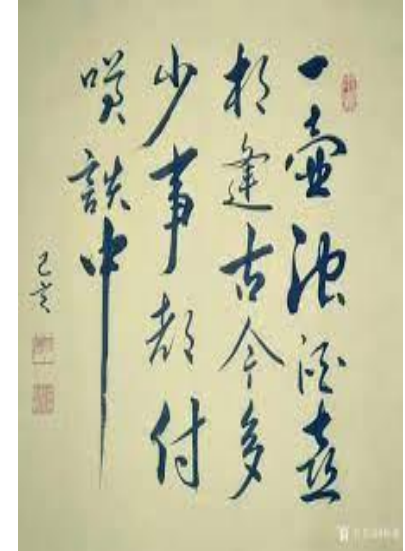 一壶浊酒喜
相逢古今多
少事都付
笑談中
己亥